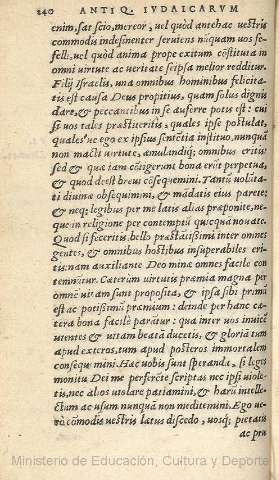 240 ANTIQ. IVDAICARVM
enim, sat scio, mereor, vel quòd antehac uestris
commodis indesinenter seruiens nūquam uos fe-
felli, uel quòd anima prope exitum cōstituta in
omni uirtute ac ueritate seipsa melior redditur.
Filij Israelis, una omnibus hominibus felicita-
tis est causa Deus propitius, quam solus dignis
dare, & peccantibus in se auferre potis est: cui
si uos tales præstiteritis, quales ipse postulat,
qualesue ego ex ipsius sentētia instituo, nunquā
non macti uirtute, æmulandiq; omnibus eritis:
sed & quæ iam cōtigerunt bona erūt perpetua,
& quod deest breui cōsequemini. Tantū uolūta-
ti diuinæ obsequimini, & mādatis eius parete:
& neq; legibus per me latis alias præponite, ne-
que in religione per contemptū quicquā nouate.
Quod si feceritis, bello præstātissimi inter omnes
gentes, & omnibus hostibus insuperabiles eri-
tis: nam auxiliante Deo minæ omnes facile con
temnūtur. Cæterùm uirtutis præmia magna per
omnē uitam sunt proposita, & ipsa sibi primū
est ac potissimū præmium: deinde per hanc cæ-
tera bona facilè parātur: qua inter uos inuicē
utentes & uitam beatā ducetis, & gloriā tum
apud exteros, tum apud posteros immortalem
consequemini. Hæc uobis sunt speranda, si legū
monitu Dei me perferēte scriptas nec ipsi uiole-
tis, nec alios uiolare patiamini, & harū intelle-
ctum ac usum nunquā non meditemini. Ego ue-
rò cōmodis uestris lætus discedo, uosq; pietatis
ac pru
Ministerio de Educación, Cultura y Deporte